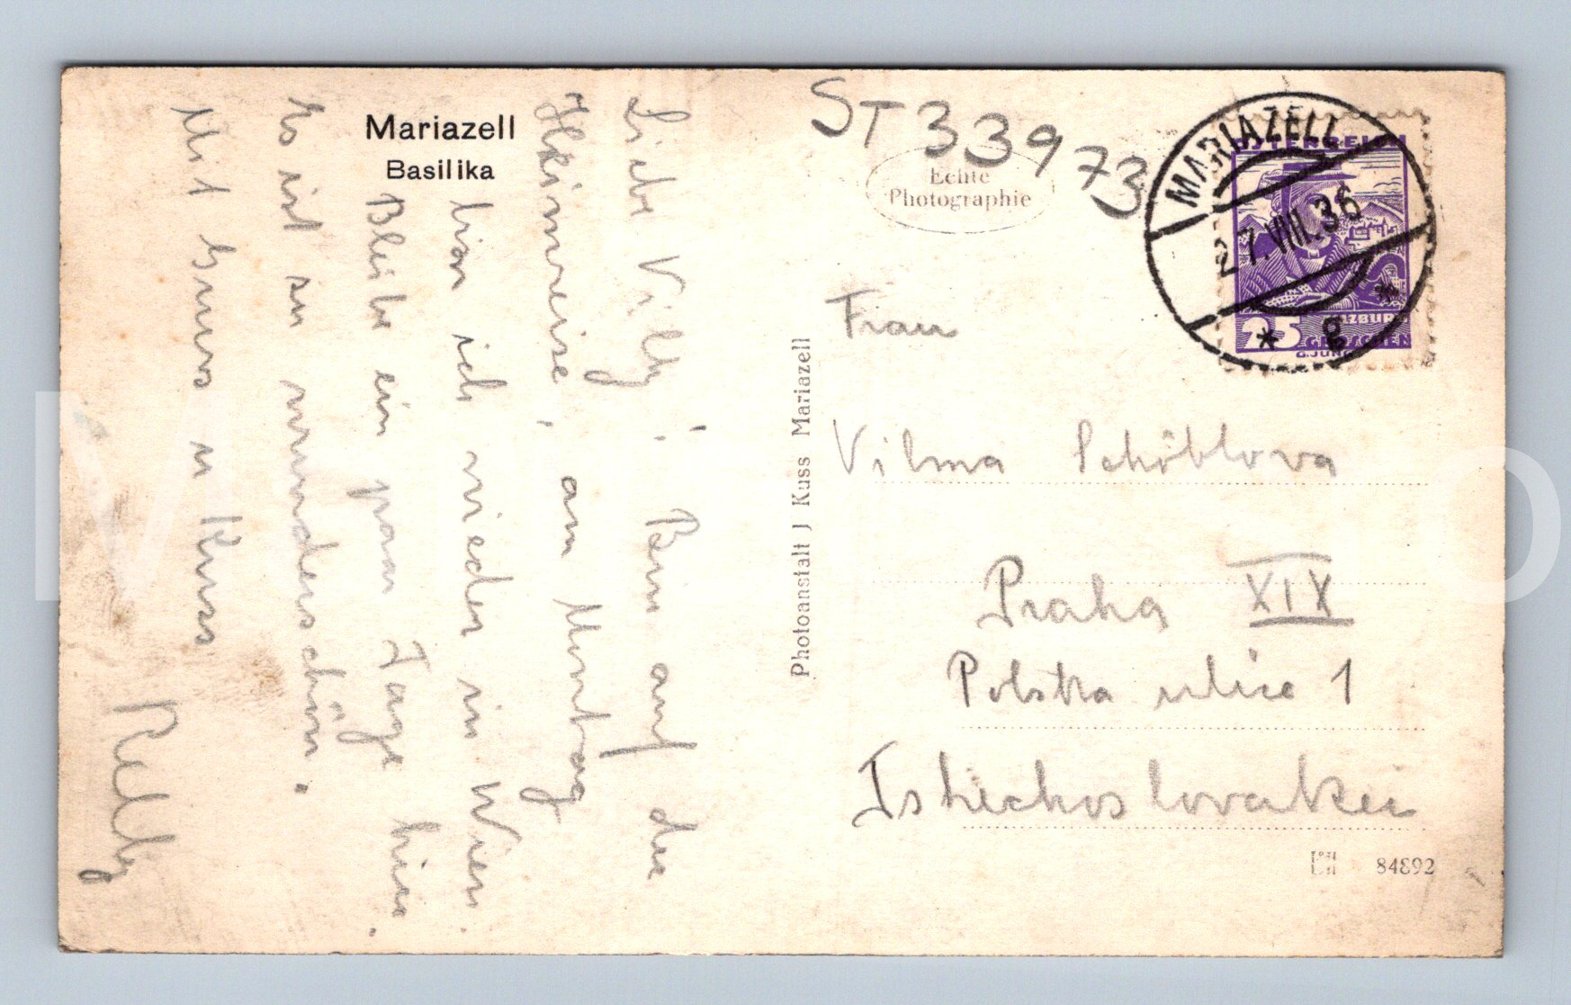 Mariazell
Basilika
Liebe Villy! Bin auf der
Heimreise, am Montag
bin ich wieder in Wien.
Bleibe ein paar Tage hier.
Es ist so wunderschön.
Mit Gruss u Kuss
ST 33973
Echte
Photographie
MARIAZELL
27.VIII.36
* g *
ÖSTERREICH
SALZBURG
25 GROSCHEN
Photoanstalt J Kuss Mariazell
Frau
Vilma Schöblova
Praha XIX
Polska ulice 1
Tshechoslovakei
84892